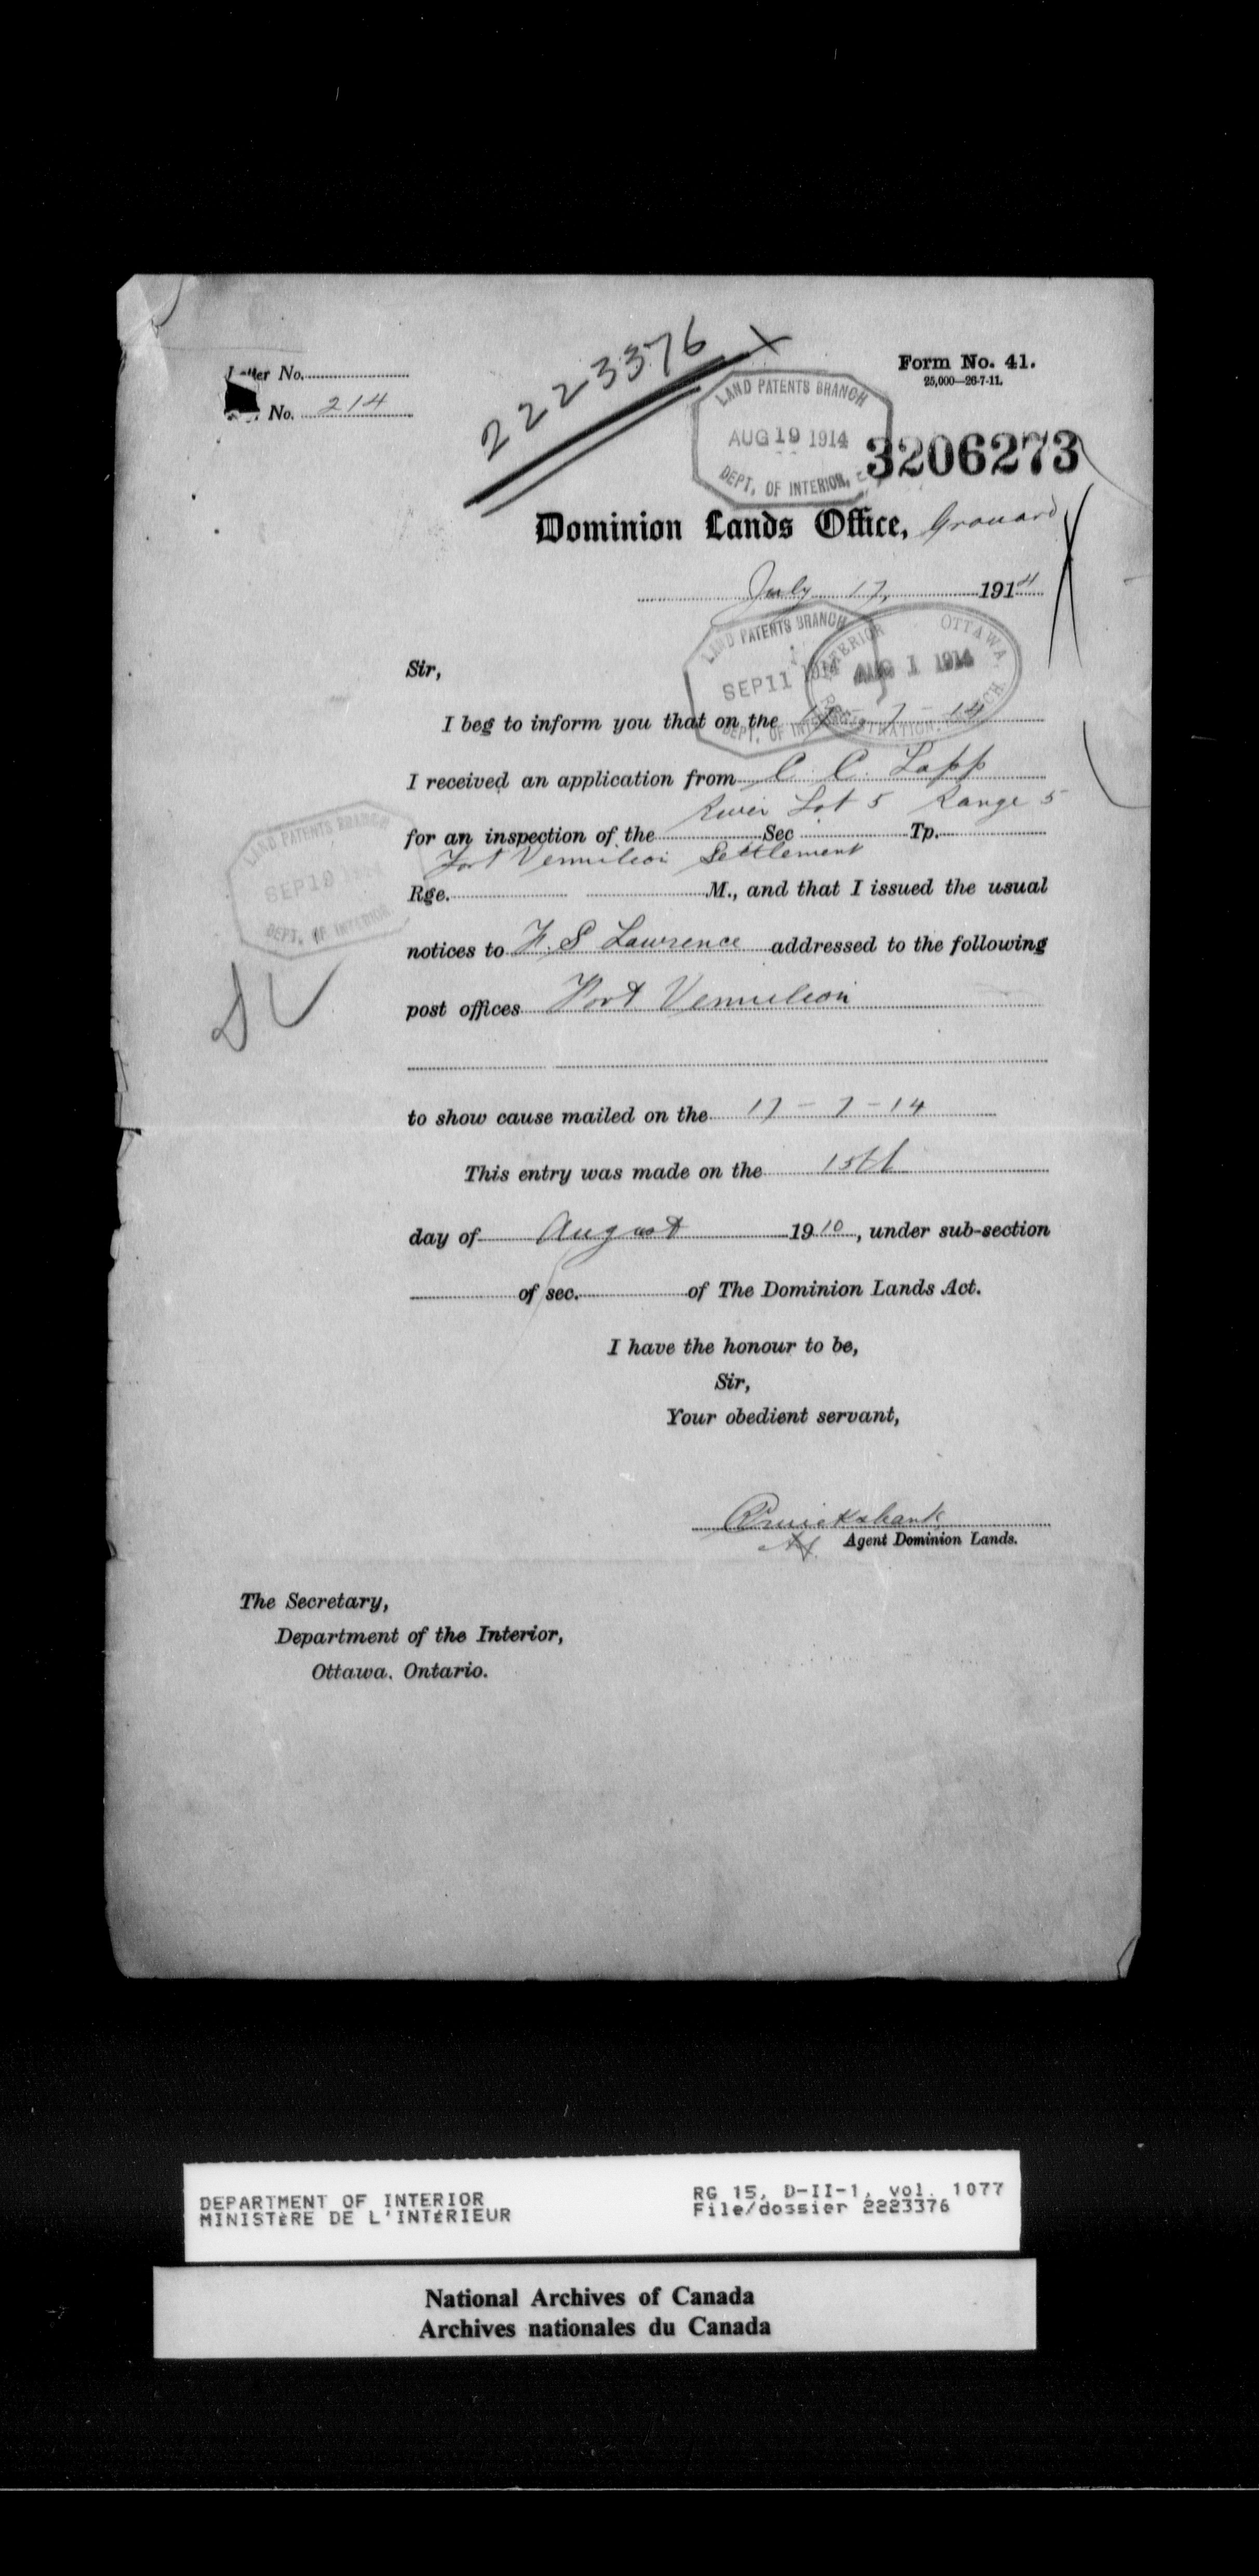 Letter No.
No. 214
2223376
Form No. 41.
25,000—26-7-11.
LAND PATENTS BRANCH
AUG 19 1914
DEPT. OF INTERIOR,
3206273
Dominion Lands Office, Grouard
July 17, 1914
LAND PATENTS BRANCH
SEP 11 1914
DEPT. OF INTERIOR
INTERIOR OTTAWA,
AUG 1 1914
REGISTRATION BRANCH.
Sir,
I beg to inform you that on the 17 - 7 - 14
I received an application from C. C. Lapp
River Lot 5 Range 5
for an inspection of the Sec Tp.
Fort Vermilion Settlement
Rge. M., and that I issued the usual
LAND PATENTS BRANCH
SEP 19 1914
DEPT. OF INTERIOR
notices to F. S Lawrence addressed to the following
post offices Fort Vermilion
to show cause mailed on the 17 - 7 - 14
This entry was made on the 15th
day of August 1910, under sub-section
of sec. of The Dominion Lands Act.
I have the honour to be,
Sir,
Your obedient servant,
Cruickshank
Agent Dominion Lands.
The Secretary,
Department of the Interior,
Ottawa. Ontario.
DEPARTMENT OF INTERIOR
MINISTÈRE DE L'INTÉRIEUR
RG 15, D-II-1, vol. 1077
File/dossier 2223376
National Archives of Canada
Archives nationales du Canada